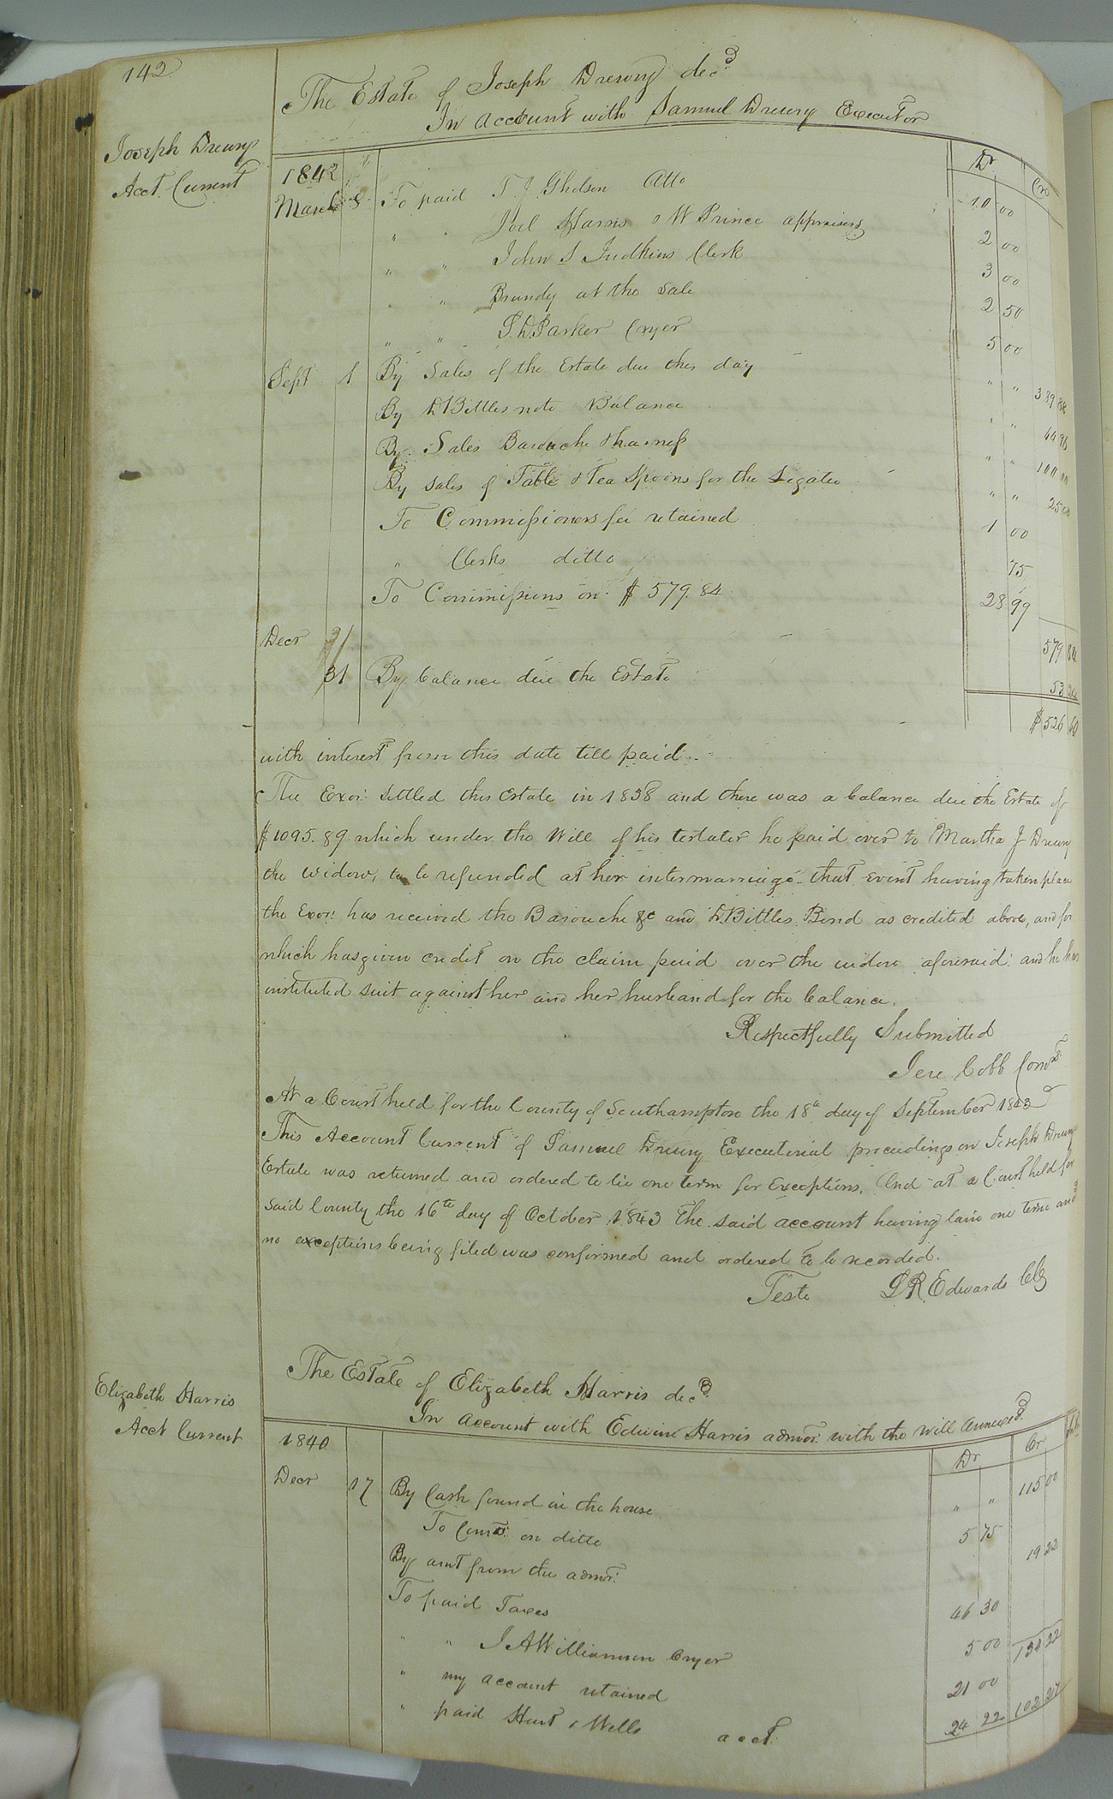 142
The Estate of Joseph Drewry decd
In account with Samuel Drewry Executor
Joseph Drewry
Acct. Current
Dr Cr
1842
March 8 To paid T. J. Gholson Atto 10 00
" " Joel Harris & W Prince appraisers 2 00
" " John S Judkins Clerk 3 00
" " Brandy at the sale 2 50
" " Parker Cryer 5 00
Sept 1 By Sales of the Estate due this day " "
By Bittles note Balance " "
By Sales Barouche & harness " " 100
By sales of Table & Tea Spoons for the Legatee " " 25
To Commissioners fee retained 1 00
" Clerks ditto 75
To Commissions on $579.84 28 99
579 84
53
Decr 31
31 By balance due the Estate $526 60
with interest from this date till paid.
The Exor: settled this Estate in 1838 and there was a balance due the Estate of
$1095.89 which under the Will of his testator he paid over to Martha J Drewry
the widow, to be refunded at her intermarriage - that event having taken place
the Exor: has received the Barouche &c and Bittles Bond as credited above, and for
which has given credit on the claim paid over the widow aforesaid: and he has
instituted suit against her and her husband for the balance.
Respectfully Submitted
Jere Cobb Comr
At a Court held for the County of Southampton the 18th day of September 1843
This Account Current of Samuel Drewry Executorial proceedings on Joseph Drewry
Estate was returned and ordered to lie one term for Exceptions, And at a Court held for
said County the 16th day of October 1843 The said account having lain one term and
no exceptions being filed was confirmed and ordered to be recorded.
Teste L R Edwards Clk
The Estate of Elizabeth Harris decd
In account with Edwin Harris admor: with the will annexed
Elizabeth Harris
Acct Current
Dr Cr
1840
Decr 17 By Cash found in the house " " 115 00
To Coms on ditto 5 75
By amt from the admor: 19 22
To paid Taxes 46 30
" " J A Williamson Cryer 5 00 134 22
" my account retained 21 00
" paid Hunt & Wells acct. 24 22 102 27